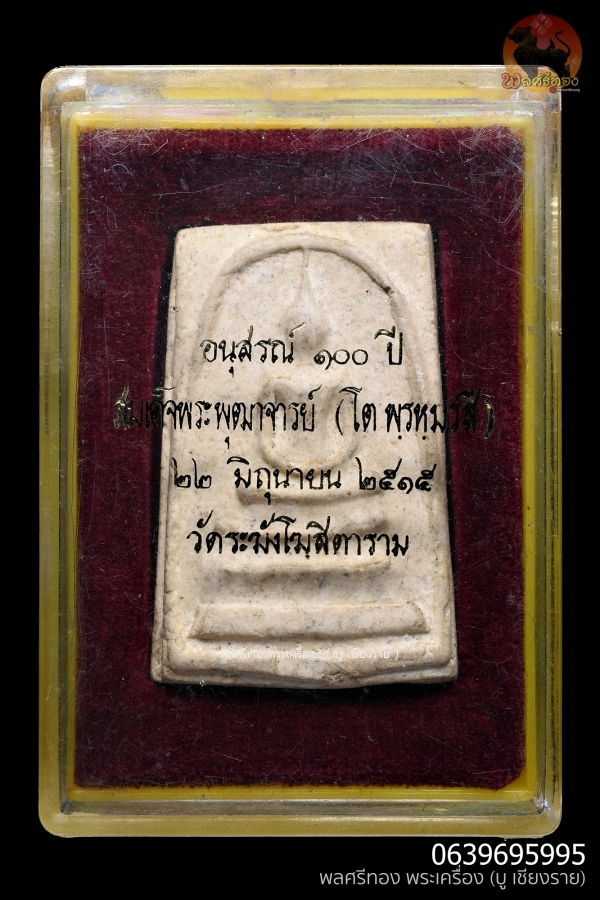 พลศรีทอง
อนุสรณ์ ๑๐๐ ปี
สมเด็จพระพุฒาจารย์ (โต พฺรหฺมรํสี)
๒๒ มิถุนายน ๒๕๑๕
วัดระฆังโฆสิตาราม
พลศรีทองพระเครื่อง (บู เชียงราย)
0639695995
พลศรีทอง พระเครื่อง (บู เชียงราย)